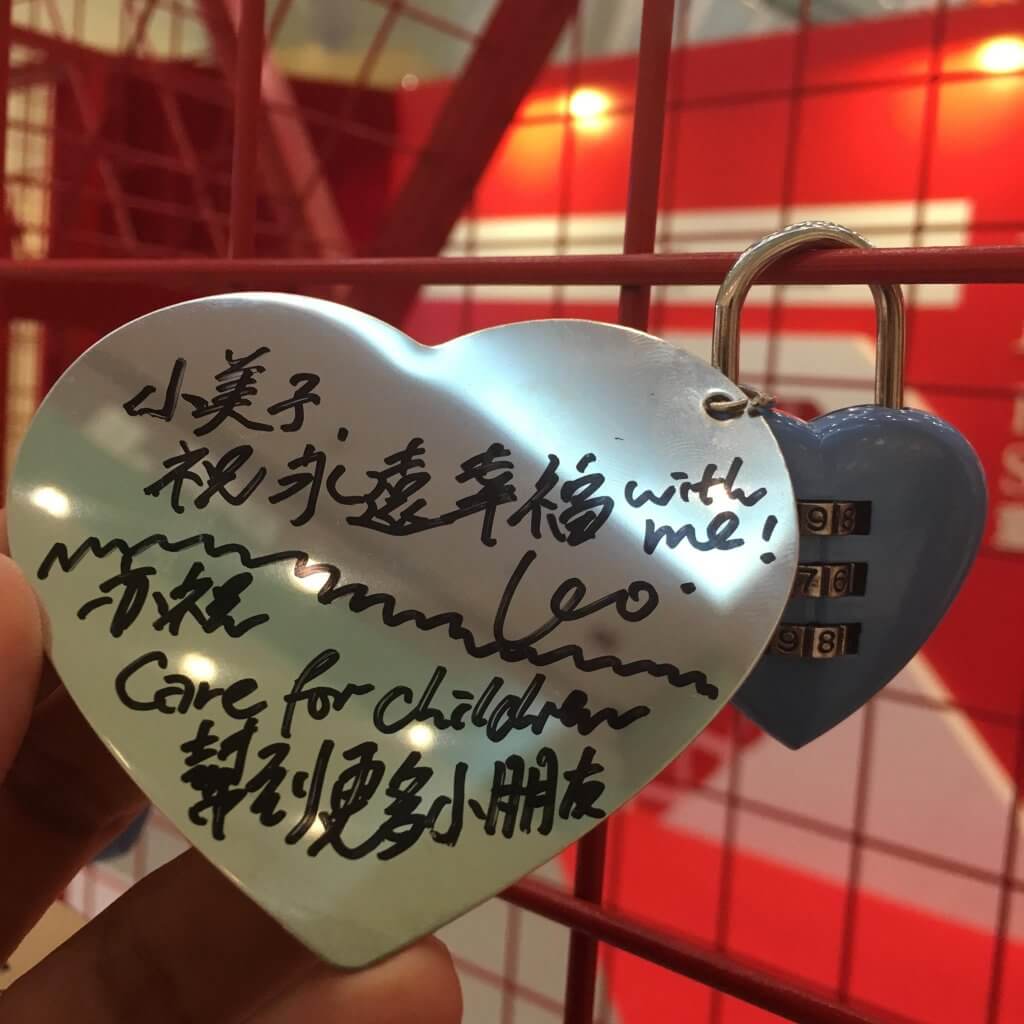 小美子,
祝永遠幸福 with
me!
Leo.
亦祝
Care for children
幫到更多小朋友
98
76
98